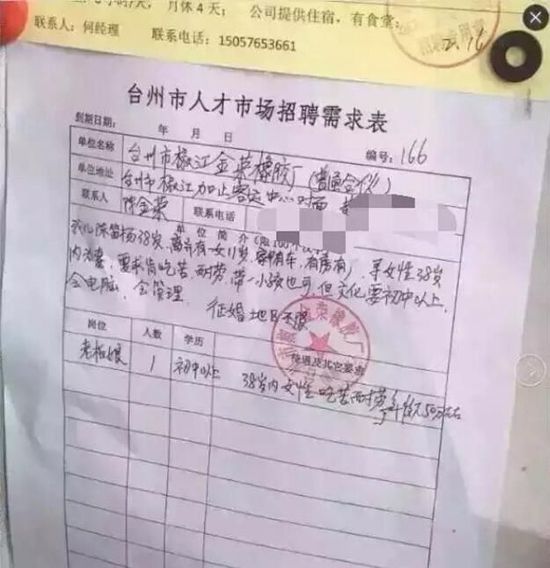 月休4天； 公司提供住宿，有食堂；
联系人：何经理 联系电话：15057653661
2.16
台州市人才市场招聘需求表
到期日期： 年 月 日
编号：166
单位名称 台州市椒江金荣橡胶厂（普通合伙）
单位地址 台州市椒江加止客运中心对面
联系人 陈金荣 联系电话
单位简介（限100个汉字）
38岁，离异有一女11岁，有车，有房，寻女性38岁
内为妻，要求肯吃苦耐劳，带一小孩也可，但文化要初中以上，
会电脑，会管理。 征婚地区不限
荣橡胶厂
岗位 人数 学历 待遇及其它要求
老板娘 1 初中以上 38岁内女性吃苦耐劳年薪50万左右